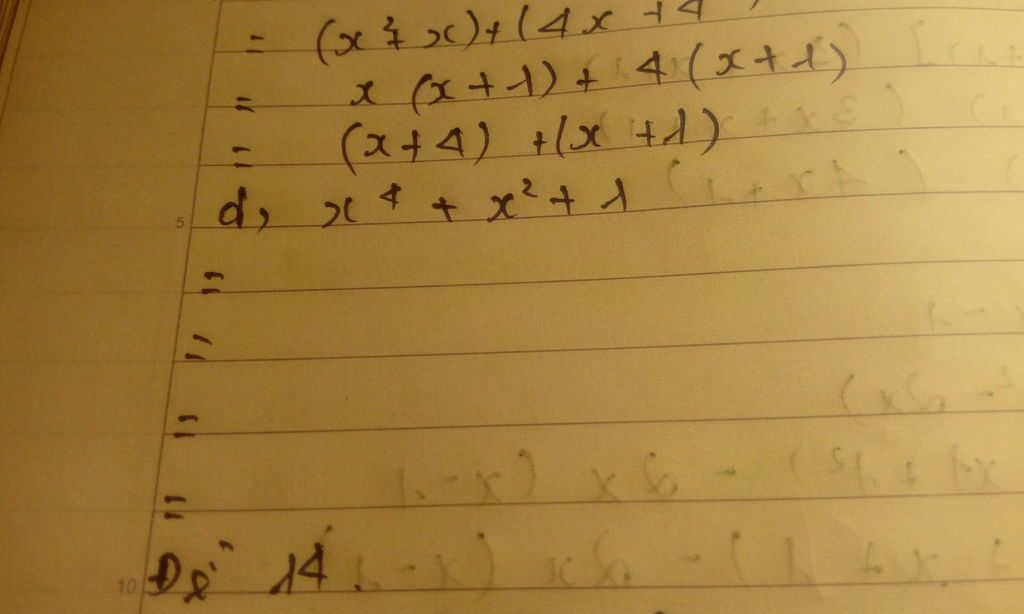 = (x² + x) + (4x + 4)
= x (x + 1) + 4 (x + 1)
= (x + 4) + (x + 1)
5 d, x⁴ + x² + 1
=
=
=
=
10 Đề 14.